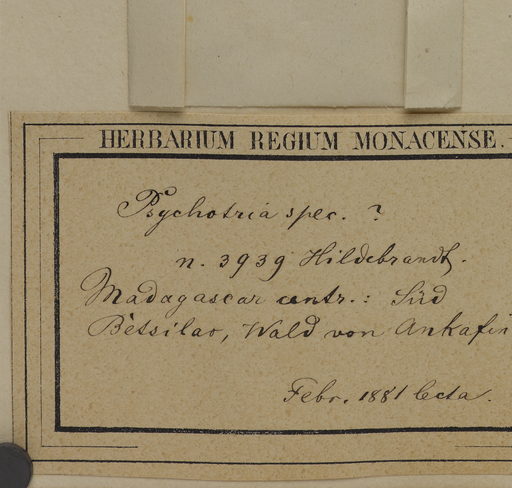 HERBARIUM REGIUM MONACENSE.
Psychotria spec. ?
n. 3939 Hildebrandt.
Madagascar centr.: Süd
Bètsilao, Wald von Ankafin
Febr. 1881 lecta.